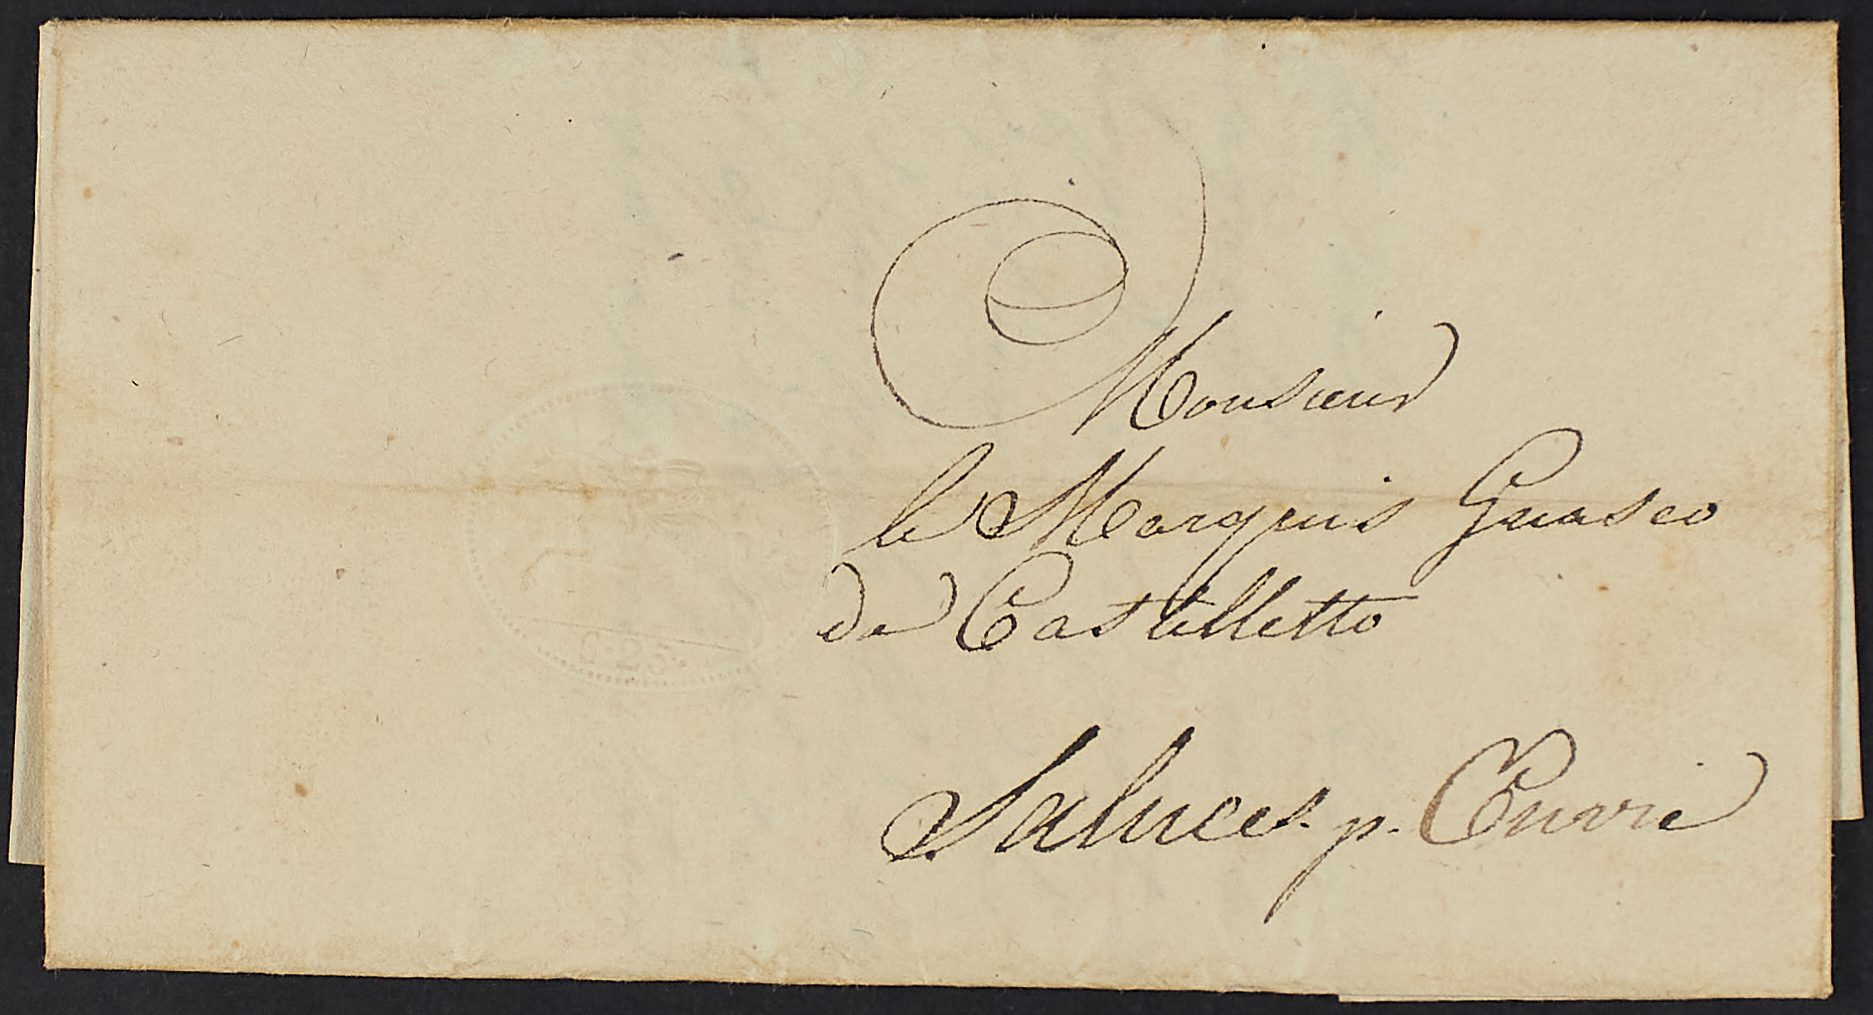 Monsieur
le Marquis Guasco
de Castelletto
Saluces. p. Envie
C. 25.